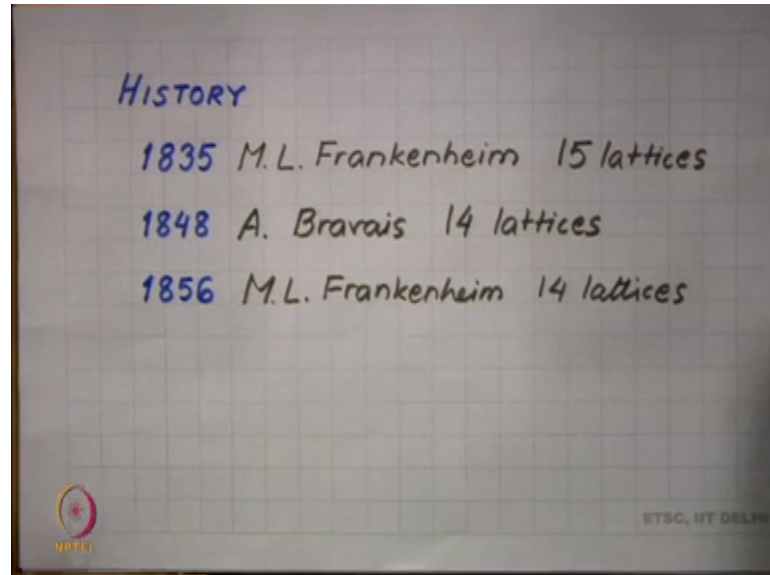 HISTORY
1835 M.L. Frankenheim 15 lattices
1848 A. Bravais 14 lattices
1856 M.L. Frankenheim 14 lattices
ETSC, IIT DELHI
NPTEL